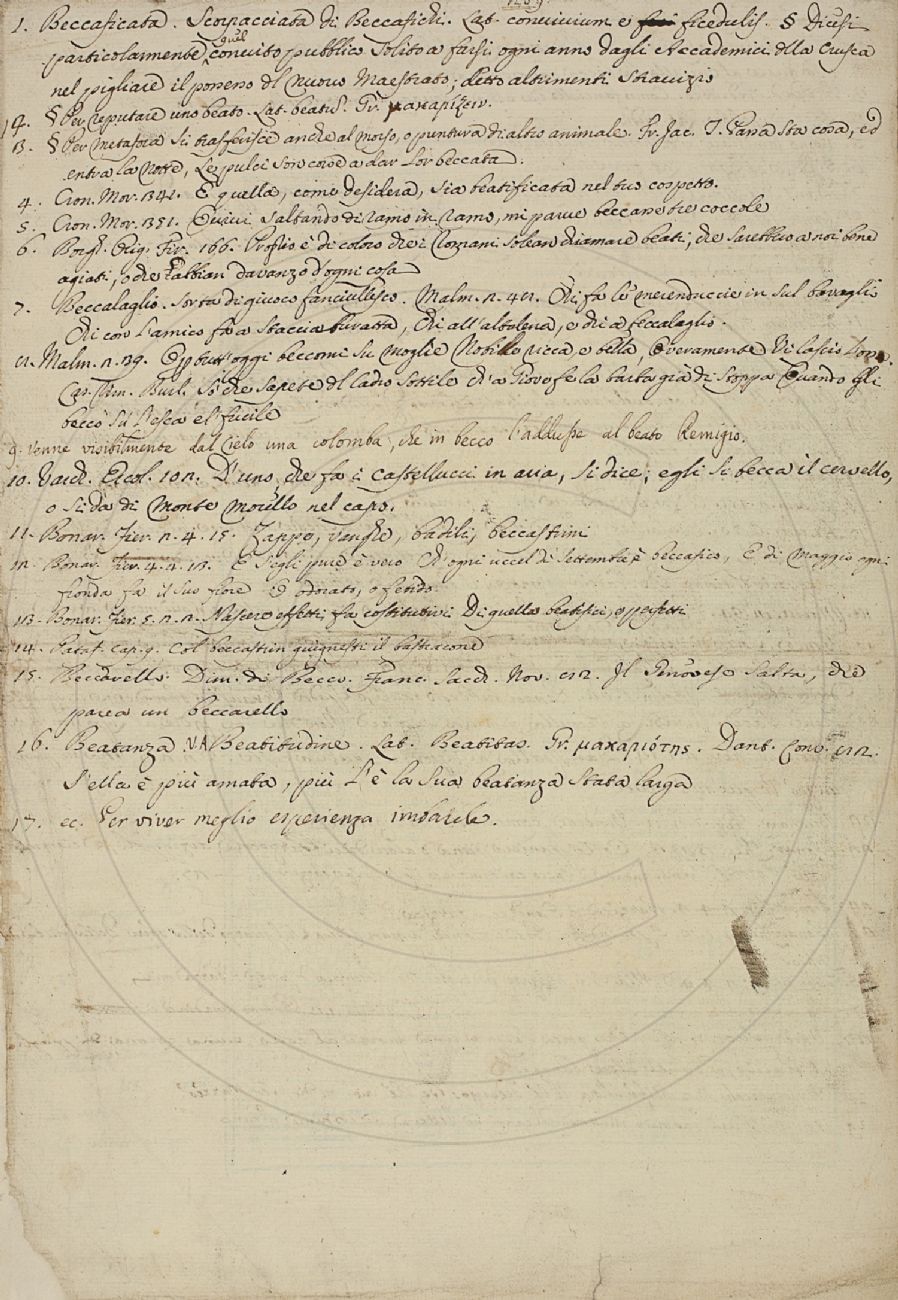 1. Beccaficata. Scorpacciata di Beccafichi. Lat. convivium e ficedulis. § Dicesi
particolarmente quel convito pubblico solito a farsi ogni anno dagli Accademici dlla Crusca
nel pigliare il possesso dl nuovo Maestrato; detto altrimenti Stravizio
12. § Per reputare uno beato. Lat. beatu. Gr. μακαρίζειν.
13. § Per metafora si trasferisce anche al morso, o puntura di altro animale. Fr. Jac. T. Gana sta cosa, ed
entra la notte, Le pulci son corse a dar lor beccata.
4. Cron. Mor. 342. E quella, come desidera, sia beatificata nel tuo cospetto.
5. Cron. Mor. 351. Quivi saltando di ramo in ramo, mi parve beccasse tre coccole
6. Borgh. Orig. Fir. 166. Proprio è di coloro che i Romani solean chiamare beati, che sarebbero a noi bene
agiati, o che abbian davanzo d'ogni cosa
7. Beccalaglio. Sorta di giuoco fanciullesco. Malm. 2. 48. Chi fa le merenduccie in sul bavaglio
Chi con l'amico fa a staccia buratta, Chi all'altalena, e chi a beccalaglio.
8. Malm. 2. 29. Oggi beccomi su moglie Nobile ricca, e bella, Overamente vi lascio
Car. Mm. Burl. So che sapete dl ladro sottile Ch'a Giove fe la barba già di stoppa Quando gli
beccò su l'esca e 'l fucile
9. venne visibilmente dal Cielo una colomba, che in becco l'addusse al beato Remigio.
10. Varch. Ercol. 102. D'uno, che fa i Castellucci in aria, si dice; egli si becca il cervello,
o si dà di Monte Morello nel capo.
11. Bonar. Fier. 2. 4. 15. Zappe, vanghe, badili, beccastrini
12. Bonar. Fier. 4. 2. 13. E s'egli pure è vero Ch'ogni uccel di Settembre è beccafico, E di Maggio ogni
fronda fa il suo fiore O odorato, o fetido.
13. Bonar. Fier. 5. 2. 2. Nascere effetti, fa costitutivi Di quella beatifici, e perfetti
14. Pataf. cap. 9. Col beccastrin giugnesti il batterone
15. Beccarello. Dim. di Becco. Franc. Sacch. Nov. 82. Il Genovese salta, che
parea un beccarello
16. Beatanza VA Beatitudine. Lat. Beatitas. Gr. μακαριότης. Dant. Conv. 82.
S'ella è più amata, più l'è la sua beatanza stata larga
17. ec. Per viver meglio esperienza imbarche.